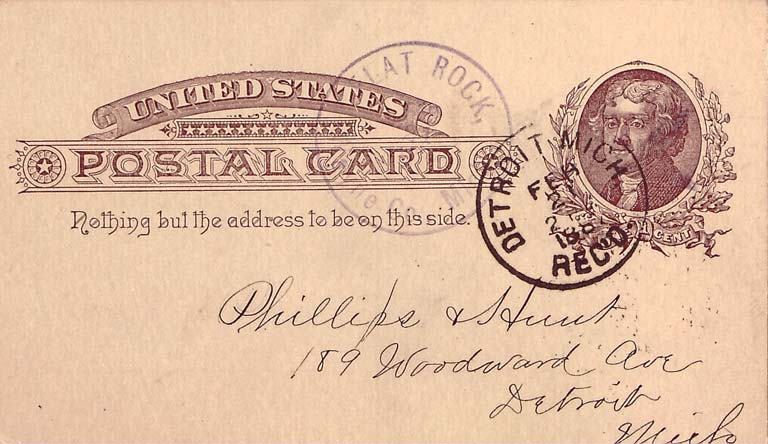 UNITED STATES
POSTAL CARD
Nothing but the address to be on this side.
FLAT ROCK,
DETROIT, MICH
REC'D.
CENT
Phillips & Hunt
189 Woodward Ave
Detroit
Mich